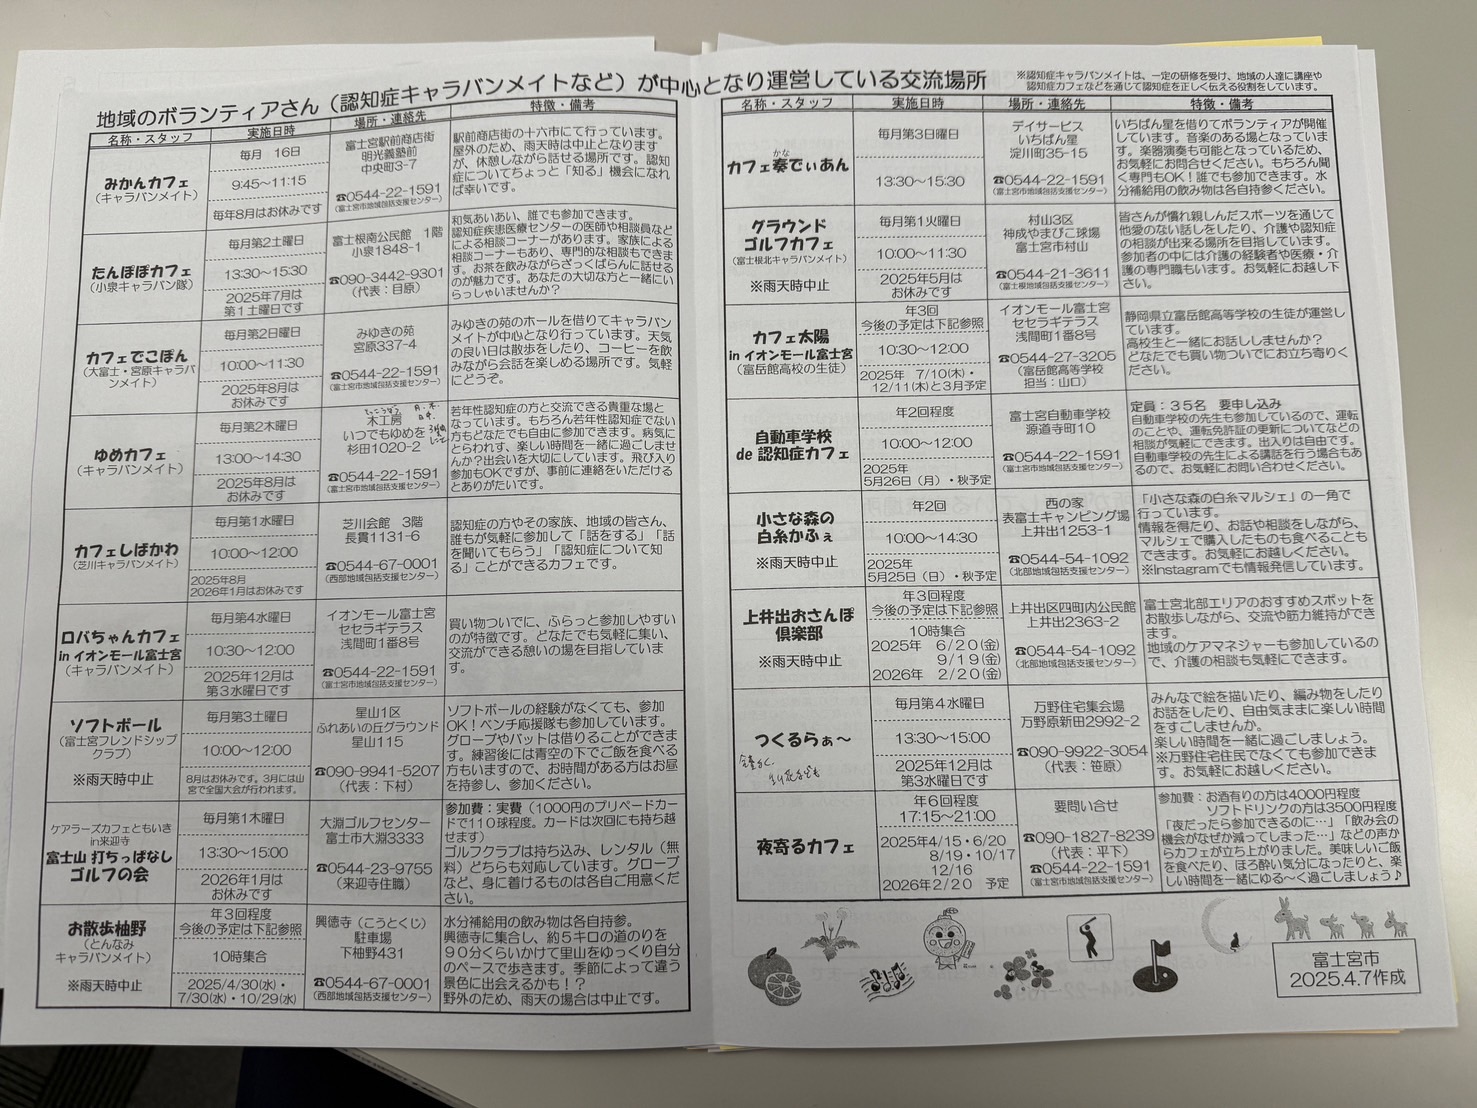 地域のボランティアさん（認知症キャラバンメイトなど）が中心となり運営している交流場所
※認知症キャラバンメイトは、一定の研修を受け、地域の人達に講座や
認知症カフェなどを通じて認知症を正しく伝える役割をしています。
名称・スタッフ
実施日時
場所・連絡先
特徴・備考
みかんカフェ
（キャラバンメイト）
毎月　16日
9:45～11:15
毎年8月はお休みです
富士宮駅前商店街
明光義塾前
中央町3-7
☎0544-22-1591
（富士宮市地域包括支援センター）
駅前商店街の十六市にて行っています。
屋外のため、雨天時は中止となります
が、休憩しながら話せる場所です。認知
症についてちょっと「知る」機会になれ
ば幸いです。
たんぽぽカフェ
（小泉キャラバン隊）
毎月第2土曜日
13:30～15:30
2025年7月は
第１土曜日です
富士根南公民館　1階
小泉1848-1
☎090-3442-9301
（代表：目原）
和気あいあい、誰でも参加できます。
認知症疾患医療センターの医師や相談員など
による相談コーナーがあります。家族による
相談コーナーもあり、専門的な相談もできま
す。お茶を飲みながらざっくばらんに話せる
のが魅力です。あなたの大切な方と一緒にい
らっしゃいませんか？
カフェでこぽん
（大富士・宮原キャラバ
ンメイト）
毎月第2日曜日
10:00～11:30
2025年8月は
お休みです
みゆきの苑
宮原337-4
☎0544-22-1591
（富士宮市地域包括支援センター）
みゆきの苑のホールを借りてキャラバン
メイトが中心となり行っています。天気
の良い日は散歩をしたり、コーヒーを飲
みながら会話を楽しめる場所です。気軽
にどうぞ。
ゆめカフェ
（キャラバンメイト）
毎月第2木曜日
13:00～14:30
2025年8月は
お休みです
木工房
いつでもゆめを
杉田1020-2
☎0544-22-1591
（富士宮市地域包括支援センター）
若年性認知症の方と交流できる貴重な場と
なっています。もちろん若年性認知症でない
方もどなたでも自由に参加できます。病気に
とらわれず、楽しい時間を一緒に過ごしませ
んか？出会いを大切にしています。飛び入り
参加もOKですが、事前に連絡をいただける
とありがたいです。
カフェしばかわ
（芝川キャラバンメイト）
毎月第1水曜日
10:00～12:00
2025年8月
2026年1月はお休みです
芝川会館　3階
長貫1131-6
☎0544-67-0001
（西部地域包括支援センター）
認知症の方やその家族、地域の皆さん、
誰もが気軽に参加して「話をする」「話
を聞いてもらう」「認知症について知
る」ことができるカフェです。
ロバちゃんカフェ
in イオンモール富士宮
（キャラバンメイト）
毎月第4水曜日
10:30～12:00
2025年12月は
第３水曜日です
イオンモール富士宮
セセラギテラス
浅間町1番8号
☎0544-22-1591
（富士宮市地域包括支援センター）
買い物ついでに、ふらっと参加しやすい
のが特徴です。どなたでも気軽に集い、
交流ができる憩いの場を目指していま
す。
ソフトボール
（富士宮フレンドシップ
クラブ）
※雨天時中止
毎月第3土曜日
10:00～12:00
8月はお休みです。3月には山
宮で全国大会が行われます。
星山1区
ふれあいの丘グラウンド
星山115
☎090-9941-5207
（代表：下村）
ソフトボールの経験がなくても、参加
OK！ベンチ応援隊も参加しています。
グローブやバットは借りることができま
す。練習後には青空の下でご飯を食べる
方もいますので、お時間がある方はお昼
を持参し、参加ください。
ケアラーズカフェともいき
in来迎寺
富士山 打ちっぱなし
ゴルフの会
毎月第1木曜日
13:30～15:00
2026年1月は
お休みです
大淵ゴルフセンター
富士市大淵3333
☎0544-23-9755
（来迎寺住職）
参加費：実費（1000円のプリペードカー
ドで１１０球程度。カードは次回にも持ち越
せます）
ゴルフクラブは持ち込み、レンタル（無
料）どちらも対応しています。グローブ
など、身に着けるものは各自ご用意くだ
さい。
お散歩柚野
（とんなみ
キャラバンメイト）
※雨天時中止
年３回程度
今後の予定は下記参照
10時集合
2025/4/30(水)・
7/30(水)・10/29(水)
興徳寺（こうとくじ）
駐車場
下柚野431
☎0544-67-0001
（西部地域包括支援センター）
水分補給用の飲み物は各自持参。
興徳寺に集合し、約５キロの道のりを
９０分くらいかけて里山をゆっくり自分
のペースで歩きます。季節によって違う
景色に出会えるかも！？
野外のため、雨天の場合は中止です。
名称・スタッフ
実施日時
場所・連絡先
特徴・備考
かな
カフェ奏でぃあん
毎月第3日曜日
13:30～15:30
デイサービス
いちばん星
淀川町35-15
☎0544-22-1591
（富士宮市地域包括支援センター）
いちばん星を借りてボランティアが開催
しています。音楽のある場となっていま
す。楽器演奏も可能となっているため、
お気軽にお問合せください。もちろん聞
く専門もOK！誰でも参加できます。水
分補給用の飲み物は各自持参ください。
グラウンド
ゴルフカフェ
（富士根北キャラバンメイト）
※雨天時中止
毎月第1火曜日
10:00～11:30
2025年5月は
お休みです
村山3区
神成やまびこ球場
富士宮市村山
☎0544-21-3611
（富士根地域包括支援センター）
皆さんが慣れ親しんだスポーツを通じて
他愛のない話しをしたり、介護や認知症
の相談が出来る場所を目指しています。
参加者の中には介護の経験者や医療・介
護の専門職もいます。お気軽にお越し下
さい。
カフェ太陽
in イオンモール富士宮
（富岳館高校の生徒）
年3回
今後の予定は下記参照
10:30～12:00
2025年　7/10(木)・
12/11(木)と3月予定
イオンモール富士宮
セセラギテラス
浅間町1番8号
☎0544-27-3205
（富岳館高等学校
担当：山口）
静岡県立富岳館高等学校の生徒が運営し
ています。
高校生と一緒にお話ししませんか？
どなたでも買い物ついでにお立ち寄りく
ださい。
自動車学校
de 認知症カフェ
年2回程度
10:00～12:00
2025年
5月26日（月）・秋予定
富士宮自動車学校
源道寺町10
☎0544-22-1591
（富士宮市地域包括支援センター）
定員：３５名　要申し込み
自動車学校の先生も参加しているので、運転
のことや、運転免許証の更新についてなどの
相談が気軽にできます。出入りは自由です。
自動車学校の先生による講話を行う場合もあ
るので、お気軽にお問い合わせください。
小さな森の
白糸かふぇ
※雨天時中止
年2回
10:00～14:30
2025年
5月25日（日）・秋予定
西の家
表富士キャンピング場
上井出1253-1
☎0544-54-1092
（北部地域包括支援センター）
「小さな森の白糸マルシェ」の一角で
行っています。
情報を得たり、お話や相談をしながら、
マルシェで購入したものも食べることも
できます。お気軽にお越しください。
※Instagramでも情報発信しています。
上井出おさんぽ
倶楽部
※雨天時中止
年３回程度
今後の予定は下記参照
10時集合
2025年　6/20(金)
9/19(金)
2026年　2/20(金)
上井出区四町内公民館
上井出2363-2
☎0544-54-1092
（北部地域包括支援センター）
富士宮北部エリアのおすすめスポットを
お散歩しながら、交流や筋力維持ができ
ます。
地域のケアマネジャーも参加しているの
で、介護の相談も気軽にできます。
つくるらぁ～
毎月第４水曜日
13:30～15:00
2025年12月は
第3水曜日です
万野住宅集会場
万野原新田2992-2
☎090-9922-3054
（代表：笹原）
みんなで絵を描いたり、編み物をしたり
お話をしたり、自由気ままに楽しい時間
をすごしませんか。
楽しい時間を一緒に過ごしましょう。
※万野住宅住民でなくても参加できま
す。お気軽にお越しください。
夜寄るカフェ
年６回程度
17:15～21:00
2025年4/15・6/20
8/19・10/17
12/16
2026年2/20　予定
要問い合せ
☎090-1827-8239
（代表：平下）
☎0544-22-1591
（富士宮市地域包括支援センター）
参加費：お酒有りの方は4000円程度
ソフトドリンクの方は3500円程度
「夜だったら参加できるのに…」「飲み会の
機会がなぜか減ってしまった…」などの声か
らカフェが立ち上がりました。美味しいご飯
を食べたり、ほろ酔い気分になったりと、楽
しい時間を一緒にゆる～く過ごしましょう♪
富士宮市
2025.4.7作成